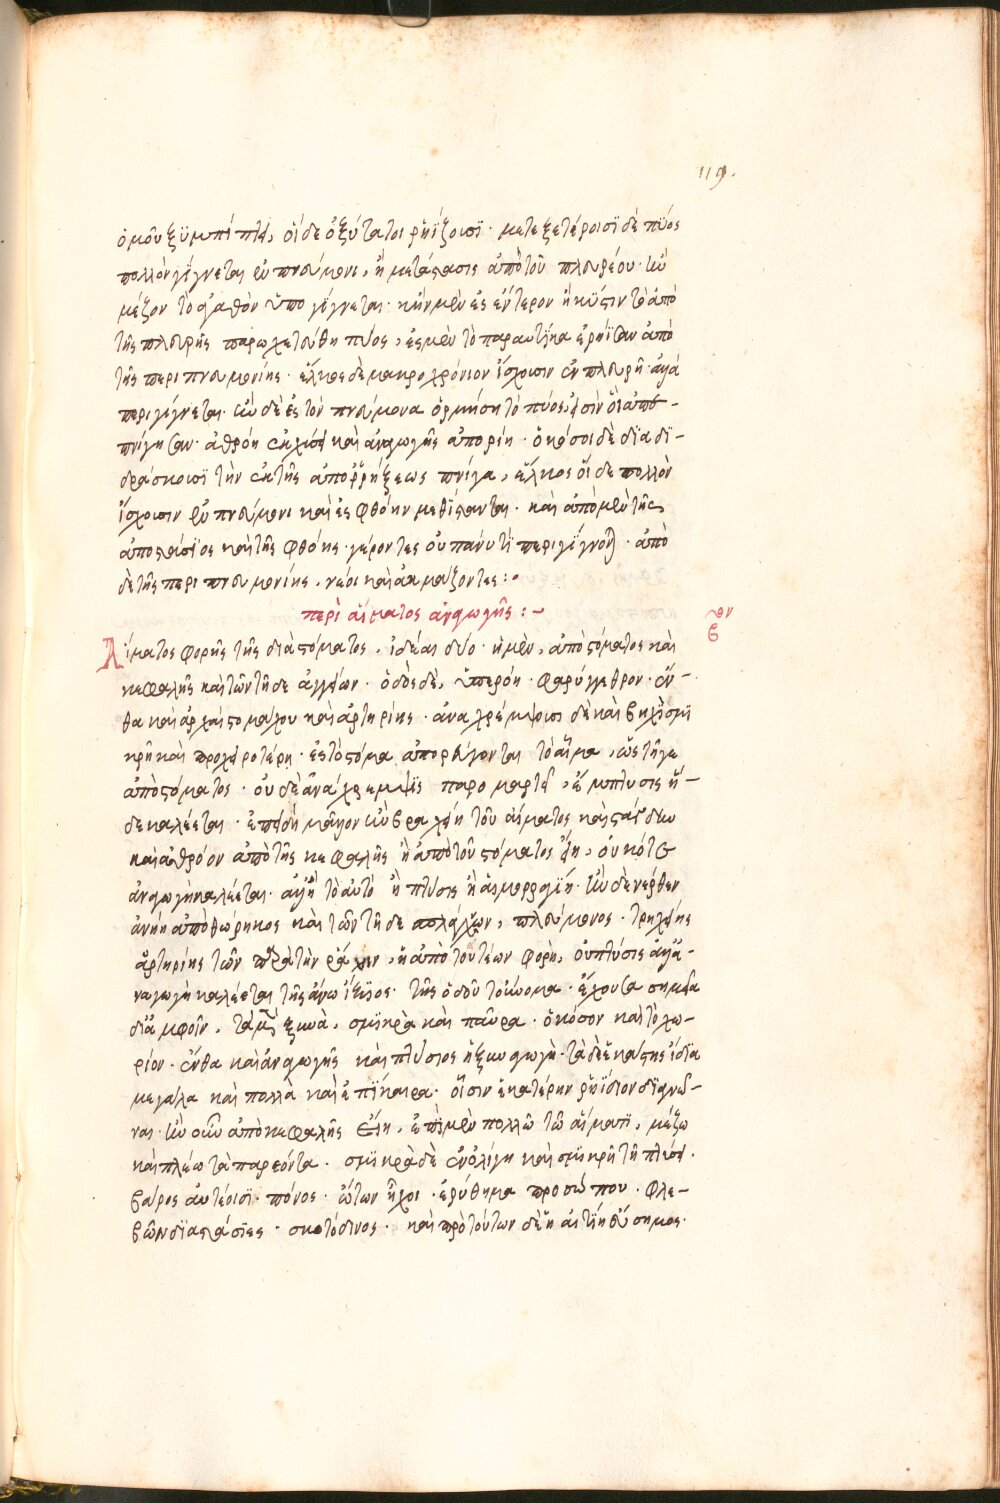 119.
ὁμοῦ ξυμπίπτει, οἱ δὲ ὀξύτατοι ῥηΐζουσι· μετεξετέροισι δὲ πῦος
πολλὸν γίγνεται ἐν πνεύμονι, ἢ μετάστασις ἀπὸ τοῦ πλευρέου· κἢν
μέζον τὸ ἀγαθὸν ὑπογίγνεται· κἢν μὲν ἐς ἔντερον ἢ κύστιν τὸ ἀπὸ
τῆς πλευρῆς παροχετευθῇ πῦος, ἐς μὲν τὸ παραυτίκα ἐρήϊσαν ἀπὸ
τῆς περιπνευμονίης· ἕλκος δὲ μακροχρόνιον ἴσχουσιν ἐν πλευρῇ· ἀλλὰ
περιγίγνεται· ἢν δὲ ἐς τὸν πνεύμονα ὁρμήσῃ τὸ πῦος, εἰσὶν οἳ ἀπό-
πνίγησαν· ἀθρόῃ ἐκχύσει καὶ ἀναγωγῆς ἀπορίῃ· ὁκόσοι δὲ διαδι-
δράσκουσι τὴν ἐκ τῆς ἀπορρήξεως πνίγα, ἕλκος οἵδε πολλὸν
ἴσχουσιν ἐν πνεύμονι καὶ ἐς φθόην μεθίστανται· καὶ ἀπὸ μὲν τῆς
ἀποστάσιος καὶ τῆς φθόης· γέροντες οὐ πάνυ τι περιγίγνονται· ἀπὸ
δὲ τῆς περιπνευμονίης, νέοι καὶ ἀκμάζοντες:·
περὶ αἵματος ἀναγωγῆς:~
Αἵματος φορῆς τῆς διὰ στόματος, ἰδέαι δύο· ἡ μὲν, ἀπὸ στόματος καὶ
κεφαλῆς καὶ τῶν τῇδε ἀγγείων· ὁδὸς δὲ, ὑπερῴη· φαρύγγεθρον· ἔν-
θα καὶ ἀρχαὶ στομάχου καὶ ἀρτηρίης· ἀναχρέμψιοσι δὲ καὶ βηχὶ σμι
κρῇ καὶ προχειροτέρῃ· ἐς τὸ στόμα ἀπορεύγονται τὸ αἷμα, ὥστῆγε
ἀπὸ στόματος· οὐδὲ ἀνάχρεμψις παρομαρτεῖ, ἔμπτυσις ἥ-
δε καλέεται· ἐπειδὴ μᾶλλον κἢν βραχείη τοῦ αἵματος καὶ στάγδην
καὶ ἀθρόον ἀπὸ τῆς κεφαλῆς ἢ ἀπὸ τοῦ στόματος ἴῃ, οὐκότε
ἀναγωγὴ καλέεται· ἀλλὰ ἢ τὸ αὐτὸ ἢ πτύσις ἢ αἱμορραγίη· ἢν δὲ νέρθεν
ἀνίῃ ἀπὸ θώρηκος καὶ τῶν τῇδε σπλάγχνων, πλεύμονος· τρηχείης
ἀρτηρίης τῶν παρὰ τὴν ῥάχιν, ἢ ἀπὸ τουτέων φορὴ, οὐ πτύσις ἀλλὰ ἀ-
ναγωγὴ καλέεται τῆς ἄνω ἴξιος· τῆς ὁδοῦ τοὔνομα· ἔχουσα σημεῖα
δι᾽ ἀμφοῖν, τὰ μὲν ξυνὰ, σμικρὰ καὶ παῦρα· ὁκόσον καὶ τὸ χω-
ρίον· ἔνθα καὶ ἀναγωγῆς καὶ πτύσιος ἡ ξυναγωγὴ· τὰ δὲ ἑκάστης ἴδια
μεγάλα καὶ πολλὰ καὶ ἐπίκαιρα· οἷσιν ἑκατέρην ῥηΐδιον διαγνῶ-
ναι· ἢν οὖν ἀπὸ κεφαλῆς ἔῃ, ἐπὶ μὲν πολλῷ τῷ αἵματι, μέζω
καὶ πλέω τὰ παρεόντα· σμικρὰ δὲ ἐν ὀλίγῃ καὶ σμικρῇ τῇ πτύσει·
βάρος αὐτέοισι· πόνος· ὤτων ἦχοι· ἐρύθημα προσώπου· φλε-
βῶν διαστάσιες· σκοτόδινος· καὶ πρὸ τούτων δὲ ἡ αἰτίη εὔσημος·